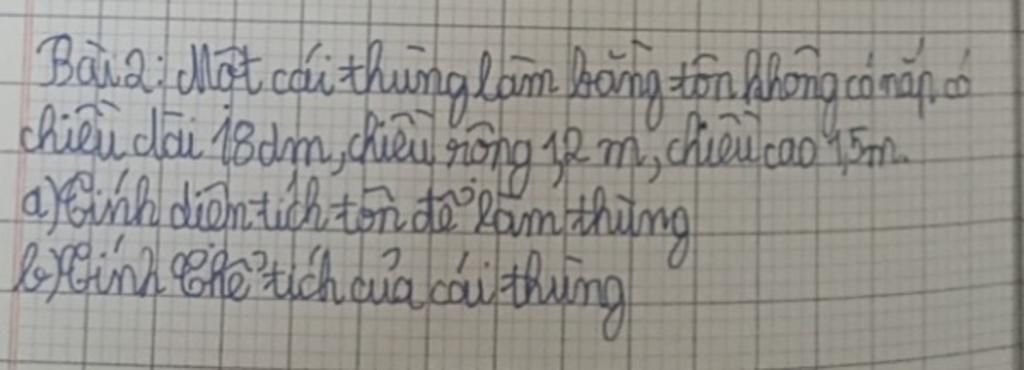 Bài 2: Một cái thùng làm bằng tôn không có nắp, có
chiều dài 18dm, chiều rộng 1,2 m, chiều cao 1,5m.
a) Tính diện tích tôn để làm thùng
b) Tính thể tích của cái thùng